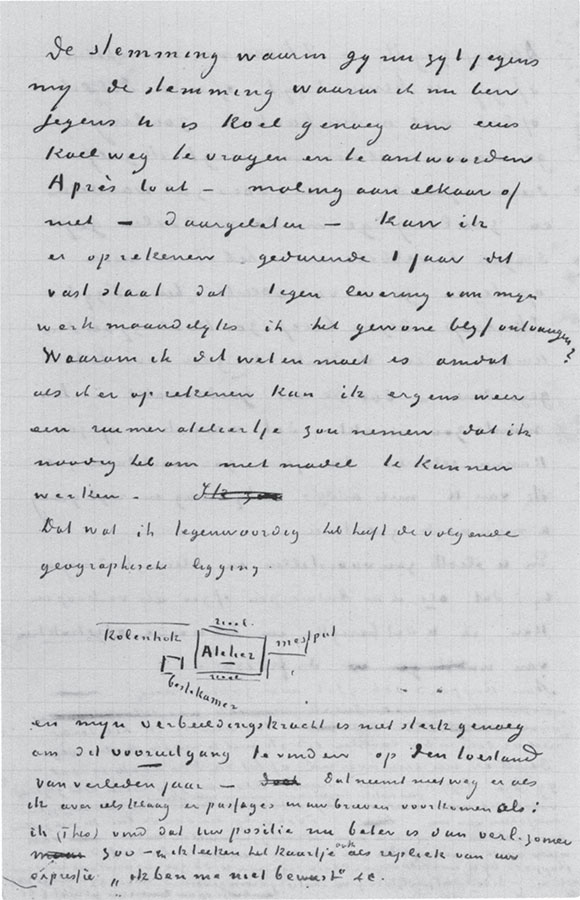 De stemming waarin gy nu zyt jegens
my de stemming waarin ik nu ben
jegens U is koel genoeg om eens
koelweg te vragen en te antwoorden
Après tout – moling aan elkaar of
niet – daargelaten – kan ik
er op rekenen gedurende 1 jaar dit
vast staat dat tegen levering van myn
werk maandelyks ik het gewone blyf ontvangen?
Waarom ik dit weten moet is omdat
als ik er op rekenen kan ik ergens weer
een ruimer ateliertje zou nemen dat ik
noodig heb om met model te kunnen
werken – Ik zou
Dat wat ik tegenwoordig heb heeft de volgende
geographische ligging.
riool
Kolenhok Atelier mestput
riool
bestekamer
en myn verbeeldingskracht is niet sterk genoeg
om dit vooruitgang te vinden op den toestand
van verleden jaar – Dat neemt niet weg er als
ik over iets klaag er passages in uw brieven voorkomen als:
ik (Theo) vind dat uw positie nu beter is dan verl. zomer
zoo – en ik teeken het kaartje ook als repliek van uw
expressie „ik ben me niet bewust" &c.